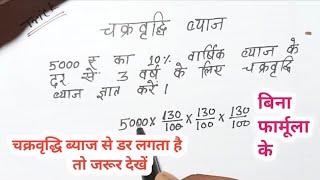 चक्रवृद्धि ब्याज
5000 रु का 10% वार्षिक ब्याज के
दर से 3 वर्ष के लिए चक्रवृद्धि
ब्याज ज्ञात करें।
5000 × 130/100 × 130/100 × 130/100
बिना
फार्मूला
के
चक्रवृद्धि ब्याज से डर लगता है
तो जरूर देखें